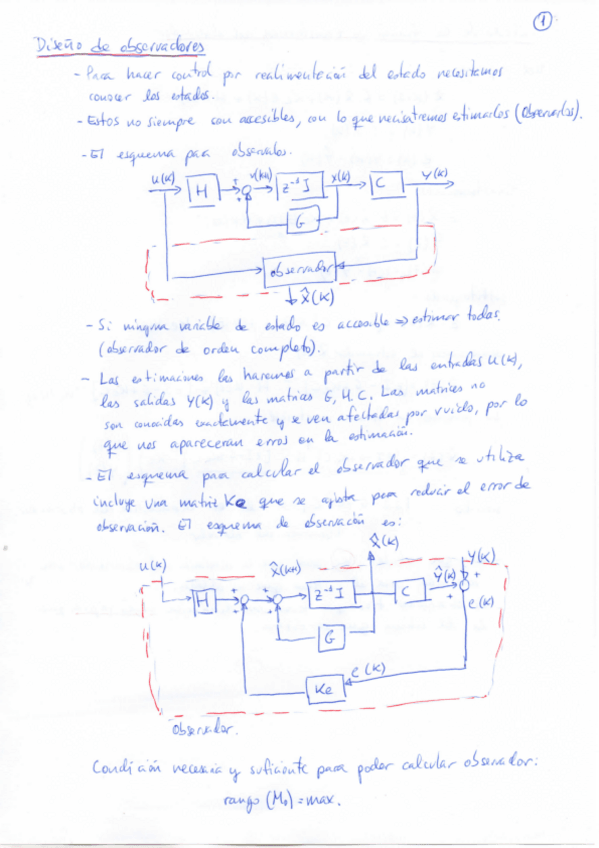 1
Diseño de observadores
- Para hacer control por realimentación del estado necesitamos
conocer los estados.
- Estos no siempre son accesibles, con lo que necisatremos estimarlos (Observarlos).
- El esquema para observarlos.
u(k) H + + x(k+1) z⁻¹ I x(k) C y(k)
G
observador
x̂(k)
- Si ninguna variable de estado es accesible => estimar todas.
(observador de orden completo).
- Las estimaciones las haremos a partir de las entradas u(k),
las salidas y(k) y las matrices G, H, C. Las matrices no
son conocidas exactamente y se ven afectadas por ruido, por lo
que nos apareceran erros en la estimación.
- El esquema para calcular el observador que se utiliza
incluye una matriz Ke que se ajusta para reducir el error de
observación. El esquema de observación es:
x̂(k)
u(k) x̂(k+1) y(k)
H + + z⁻¹ I C ŷ(k) +
e(k)
G
Ke e(k)
Observador.
Condición necesaria y suficiente para poder calcular observador:
rango (M₀) = max.